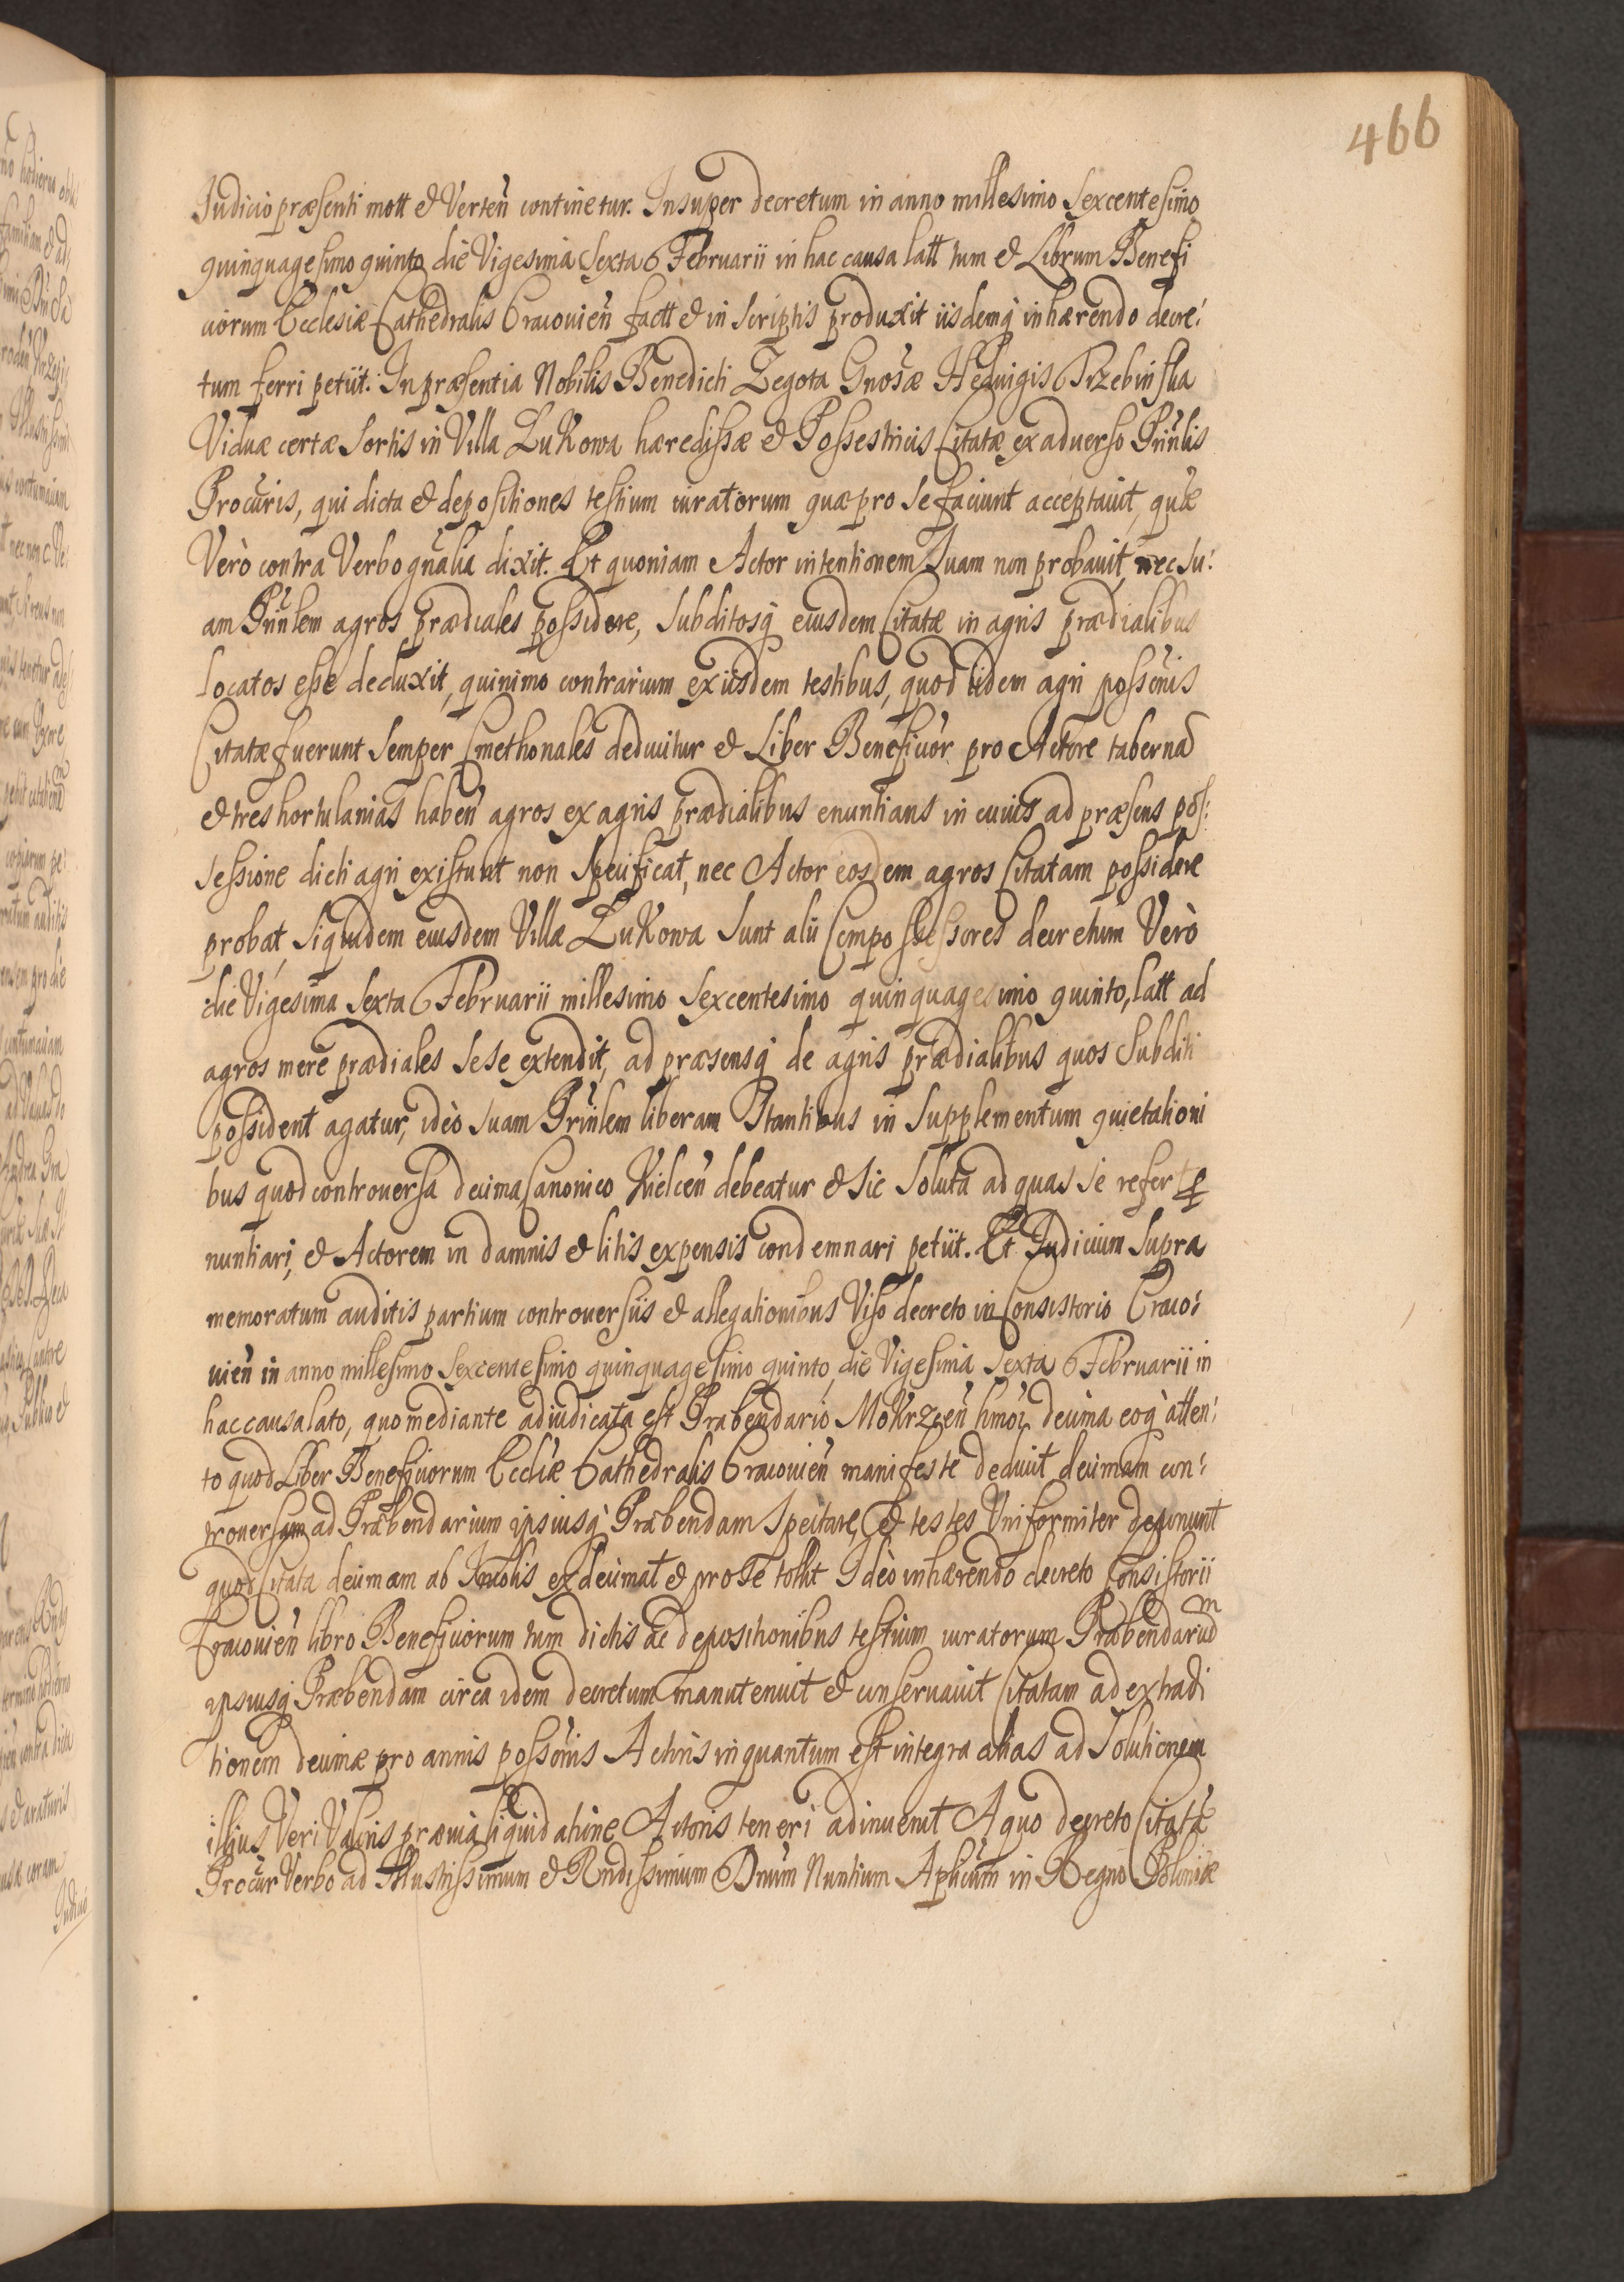 466
Judicio præsenti mott & Verteñ continetur. Insuper decretum in anno millesimo Sexcentesimo
quinquagesimo quinto die Vigesima Sexta Februarii in hac causa latt tum & Librum Benefi
ciorum Ecclesiæ Cathedralis Cracovień factt & in scriptis produxit iisdemq inhærendo decre:
tum ferri petiit. In præsentia Nobilis Benedicti Zegota Gnosæ Hedvigis Trzebinska
Viduæ certæ Sortis in Villa Lukowa hæredissæ & Possestricis Citatæ ex adverso Prinlis
Procuris, qui dicta & depositiones testium iuratorum quæ pro se faciunt acceptavit, quæ
Verò contra Verbo gnalia dixit. Et quoniam Actor intentionem Suam non probavit, nec Su:
am Prinlem agros prædiales possidere, Subditosq eiusdem Citatæ in agris prædialibus
locatos esse deduxit, quinimo contrarium ex iisdem testibus, quod iidem agri possonis
Citatæ fuerunt Semper Cmethonales deducitur & Liber Beneficiör pro Actore tabernā
& tres hortulanias habeñ agros ex agris prædialibus enuntians in cuius ad præsens pos:
sessione dicti agri existunt non specificat, nec Actor eosdem agros Citatam possidere
probat, Siquidem eiusdem Villæ Lukowa Sunt alii Compossessores decretum Verò
die Vigesima Sexta Februarii millesimo Sexcentesimo quinquagesimo quinto, latt ad
agros mere prædiales Sese extendit, ad præsensq de agris prædialibus quos Subditi
possident agatur, ideò Suam Prinlem liberam Stantibus in Supplementum quietationi
bus quod controversa decima Canonico Kielceñ debeatur & sic Soluta ad quas se refert
nuntiari, & Actorem in damnis & litis expensis condemnari petiit. Et Judicium Supra
memoratum auditis partium controversiis & allegationibus Viso decreto in Consistorio Craco:
vień in anno millesimo Sexcentesimo quinquagesimo quinto, die Vigesima Sexta Februarii in
hac causa lato, quo mediante adiudicata est Præbendario Mokrzceñ hmoi decima eoq atten:
to quod Liber Beneficiorum Eccliæ Cathedralis Cracovień manifeste deducit decimam con:
troversam ad Præbendarium ipsiusq Præbendam Spectare, & testes Uniformiter deponunt
quod Citata decimam ab Incolis ex decimat & pro se tollit Ideò inhærendo decreto Consistorii
Cracovień libro Beneficiorum tum dictis ac depositionibus testium iuratorum Præbendariū
ipsiusq Præbendam circa idem decretum manutenuit & conservavit Citatam ad extradi
tionem decimæ pro annis possonis Actoris in quantum est integra alias ad Solutionem
illius Veri Valoris prævia liquidatione Actoris teneri adinvenit A quo decreto Citatæ
Procūr Verbo ad Illustrissimum & Rndissimum Dnum Nuntium Aplicum in Regno Poloniæ